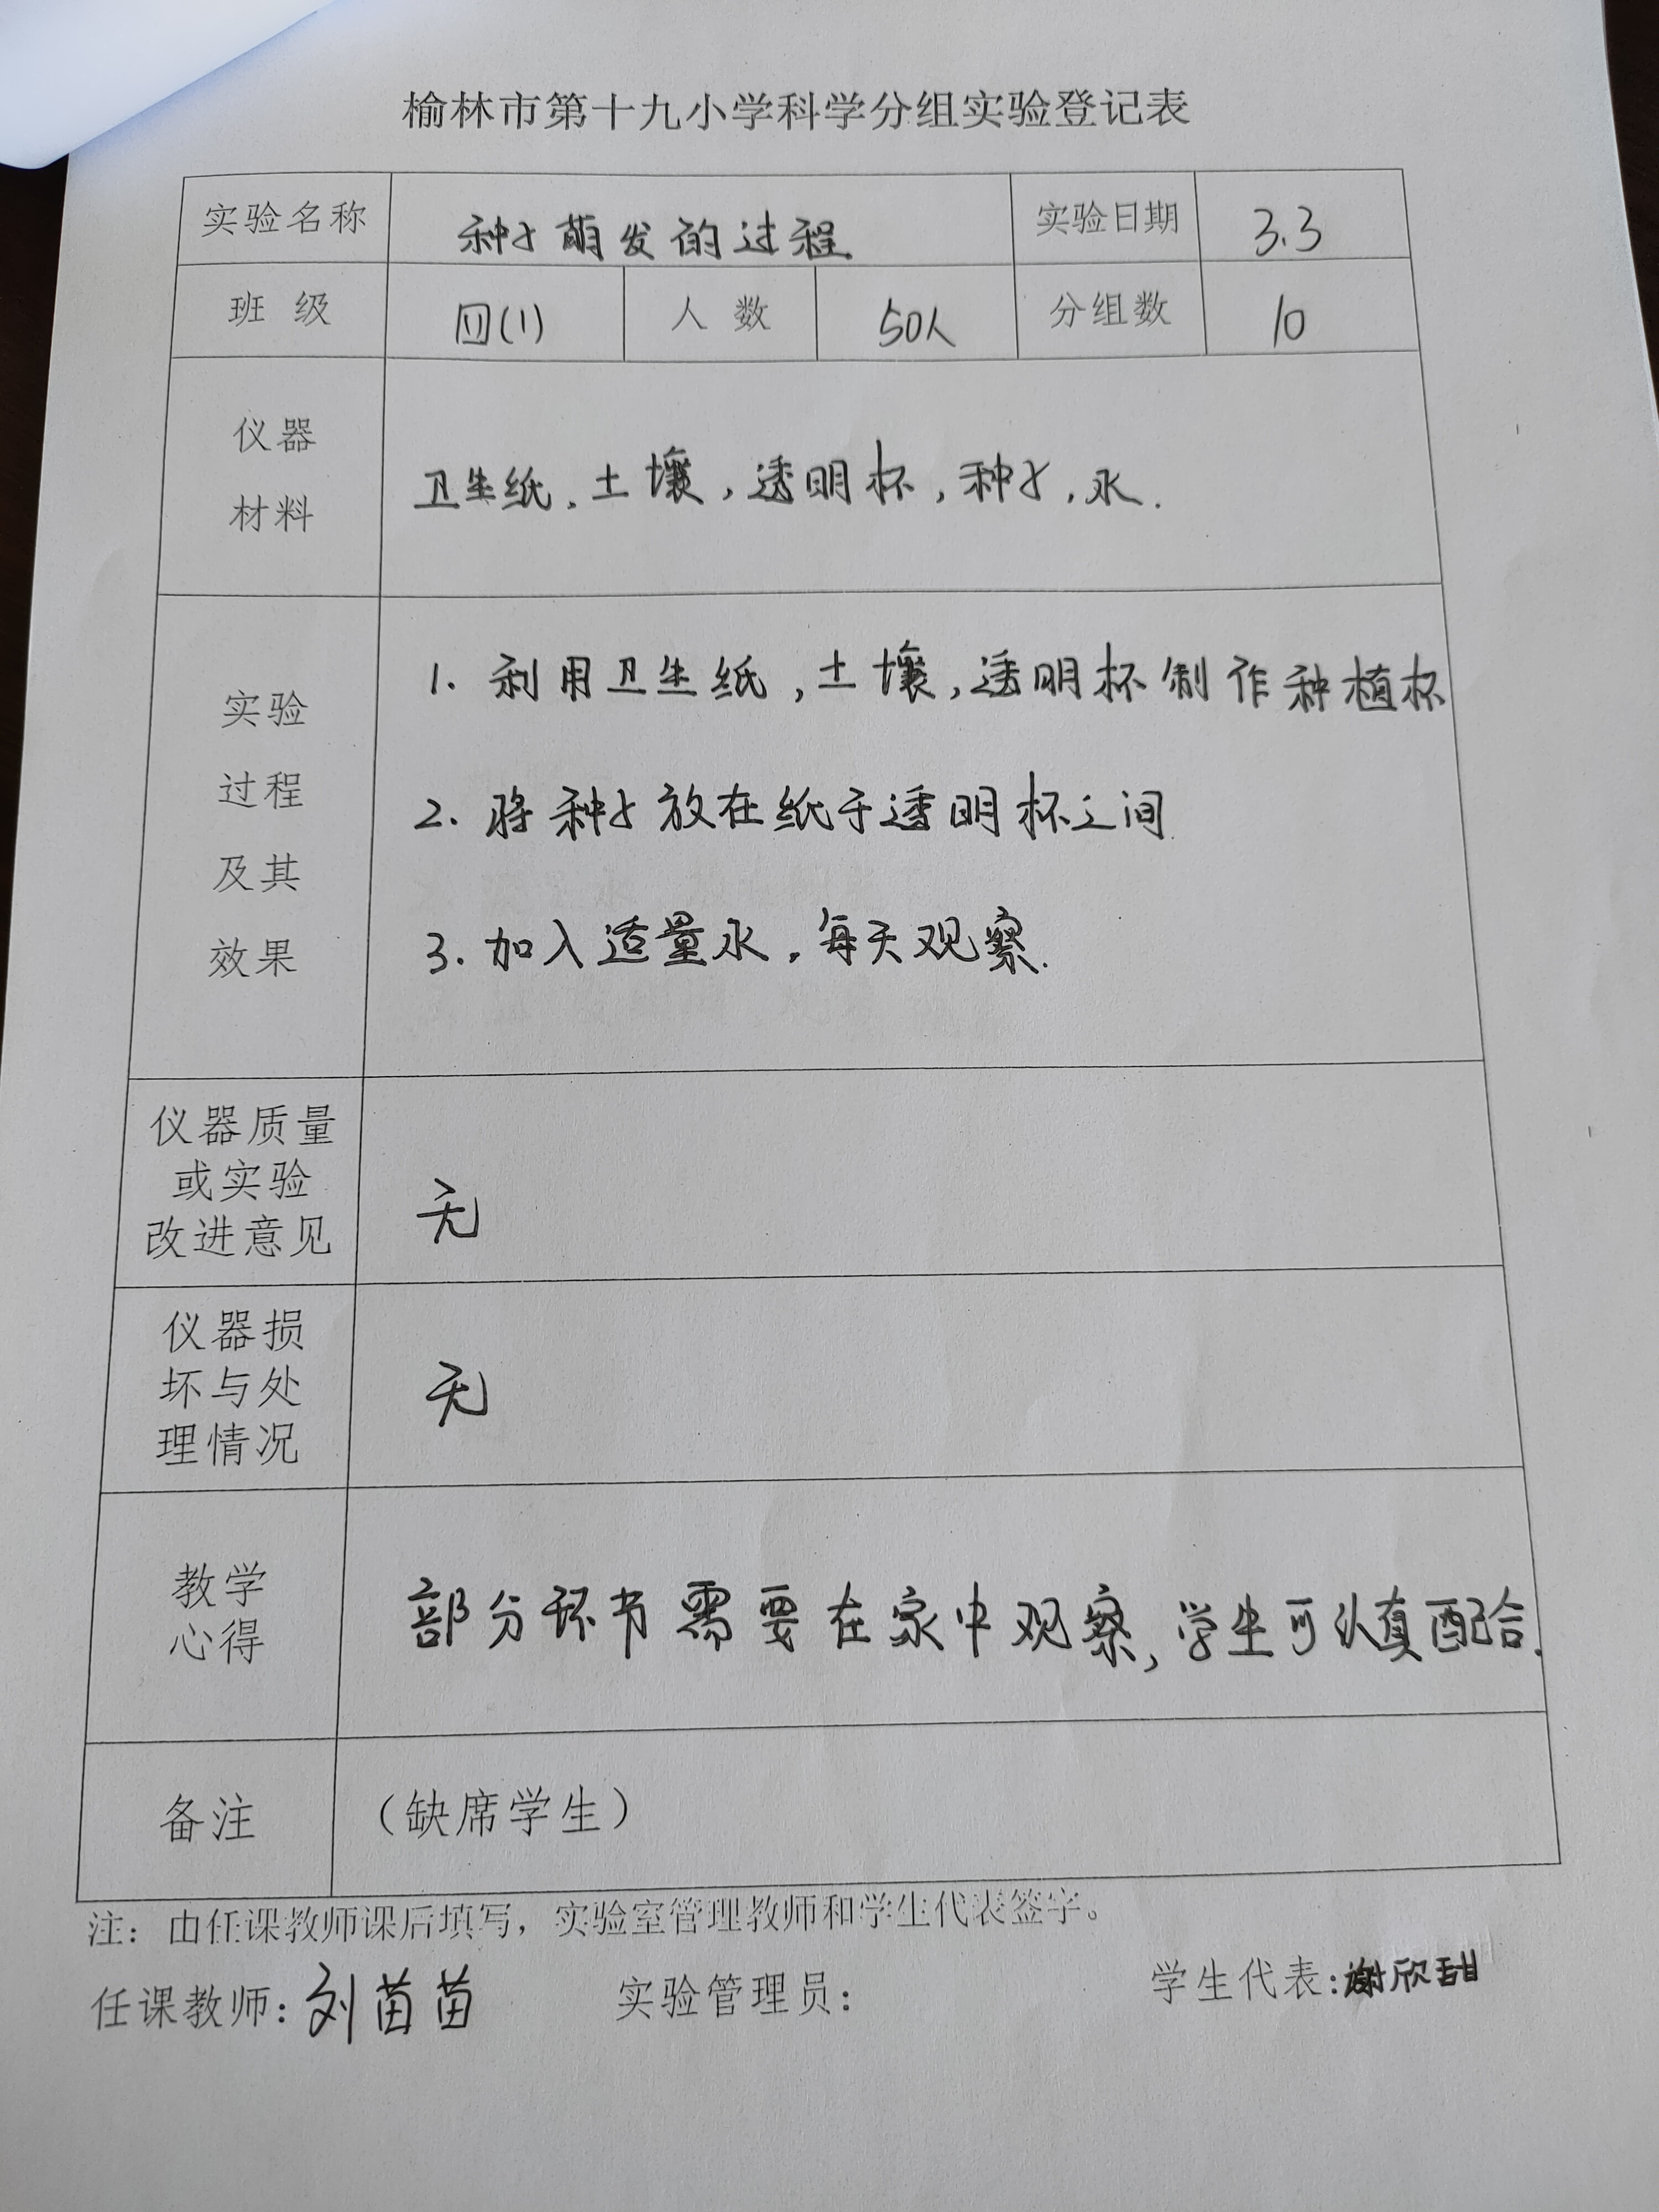 榆林市第十九小学科学分组实验登记表
实验名称 种子萌发的过程 实验日期 3.3
班 级 四(1) 人 数 50人 分组数 10
仪器
材料
卫生纸，土壤，透明杯，种子，水.
实验
过程
及其
效果
1. 利用卫生纸，土壤，透明杯制作种植杯
2. 将种子放在纸于透明杯之间.
3. 加入适量水，每天观察.
仪器质量
或实验
改进意见
无
仪器损
坏与处
理情况
无
教学
心得
部分环节需要在家中观察，学生可认真配合.
备注 （缺席学生）
注：由任课教师课后填写，实验室管理教师和学生代表签字。
任课教师：刘苗苗 实验管理员： 学生代表：谢欣甜